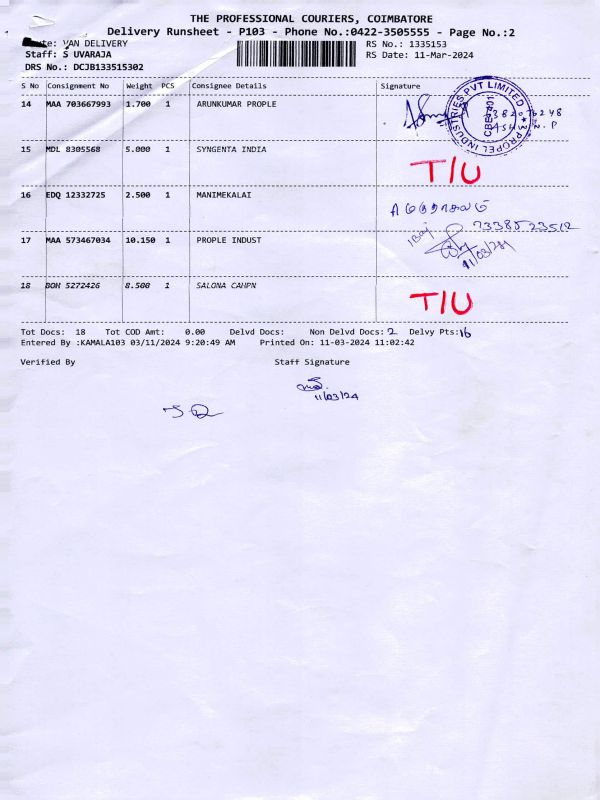 THE PROFESSIONAL COURIERS, COIMBATORE
Delivery Runsheet - P103 - Phone No.:0422-3505555 - Page No.:2
VAN DELIVERY RS No.: 1335153
Staff: S UVARAJA RS Date: 11-Mar-2024
DRS No.: DCJB133515302
S No Consignment No Weight PCS Consignee Details Signature
14 MAA 703667993 1.700 1 ARUNKUMAR PROPLE
PROPEL INDUSTRIES PVT LIMITED
15 MDL 8305568 5.000 1 SYNGENTA INDIA
T/U
16 EDQ 12332725 2.500 1 MANIMEKALAI
7338523512
17 MAA 573467034 10.150 1 PROPLE INDUST
11/03/24
18 BOH 5272426 8.500 1 SALONA CAHPN
T/U
Tot Docs: 18 Tot COD Amt: 0.00 Delvd Docs: Non Delvd Docs: 2 Delvy Pts: 16
Entered By :KAMALA103 03/11/2024 9:20:49 AM Printed On: 11-03-2024 11:02:42
Verified By Staff Signature
11/03/24